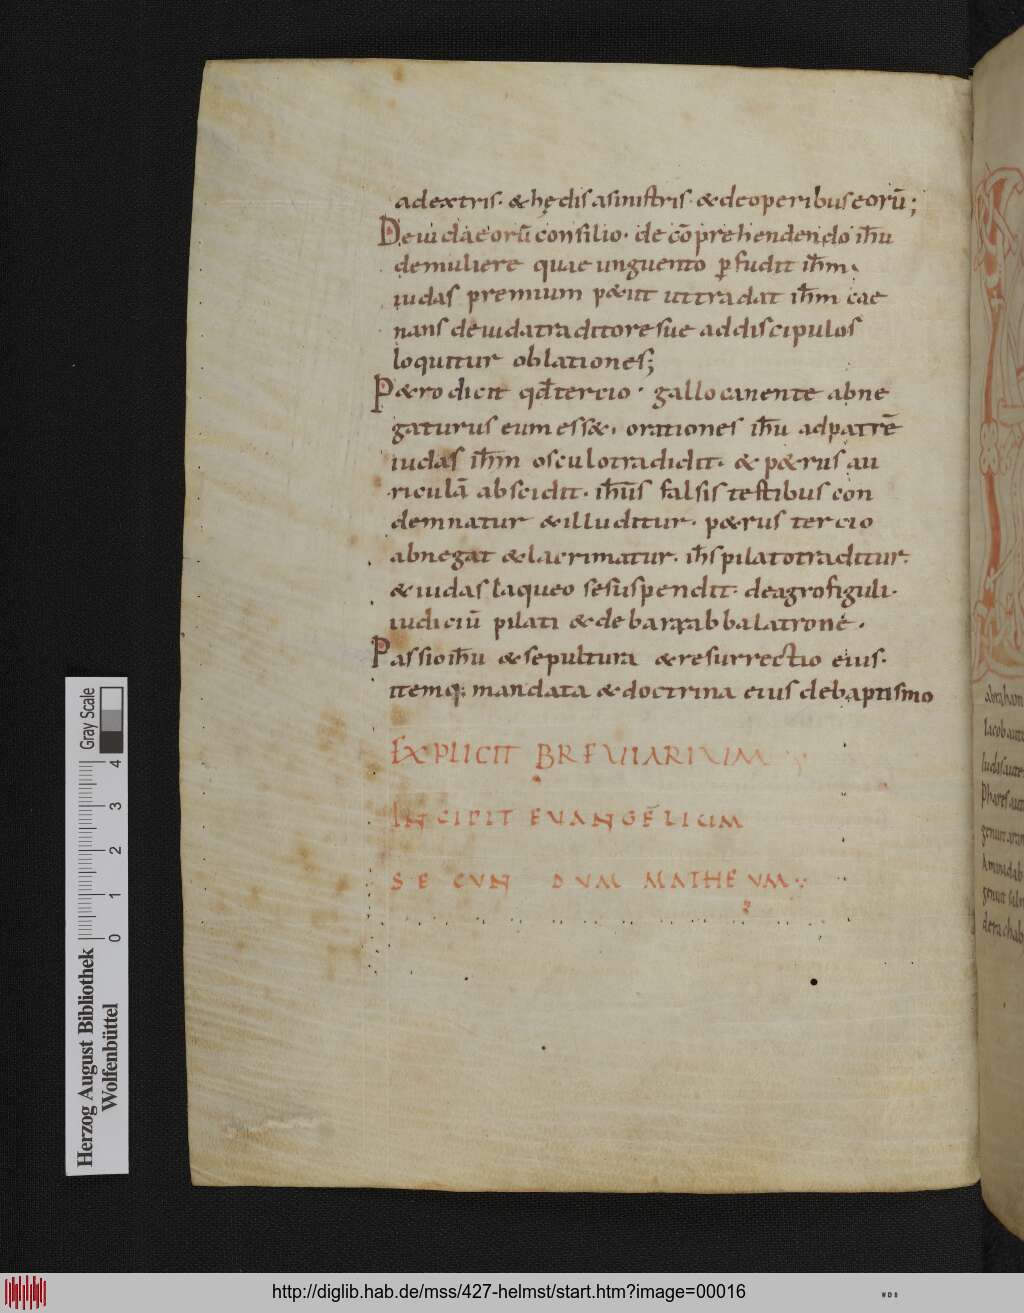 adextris· & hędis asinistris· & deoperibus eorū;
De iudaeorū consilio· de cōprehendendo ih̄u
demuliere quae unguento ꝑfudit ih̄m·
iudas premium p&iit ut tradat ih̄m cae
nans de iuda traditore sue ad discipulos
loquitur oblationes;
P&ro dicit qđ tercio· gallo canente abne
gaturus eum ess&· orationes ih̄u ad patrē
iudas ih̄m osculo tradidit· & p&rus au
riculā abscidit· ih̄us falsis testibus con
demnatur & illuditur· p&rus tercio
abnegat & lacrimatur· ih̄s pilato traditur·
& iudas laqueo se suspendit· de agro figuli·
iudiciū pilati & de barrabba latrone·
Passio ih̄u & sepultura & resurrectio eius·
itemq; mandata & doctrina eius de baptismo
EXPLICIT BREVIARIUM
INCIPIT EVANGELIUM
SECUNDUM MATHEUM
abraham
Iacob aute
Iudas aute
Phares aut
genuit aram
Aminadab
genuit salm
de rachab
Herzog August Bibliothek
Wolfenbüttel
0 1 2 3 4
Gray Scale
http://diglib.hab.de/mss/427-helmst/start.htm?image=00016